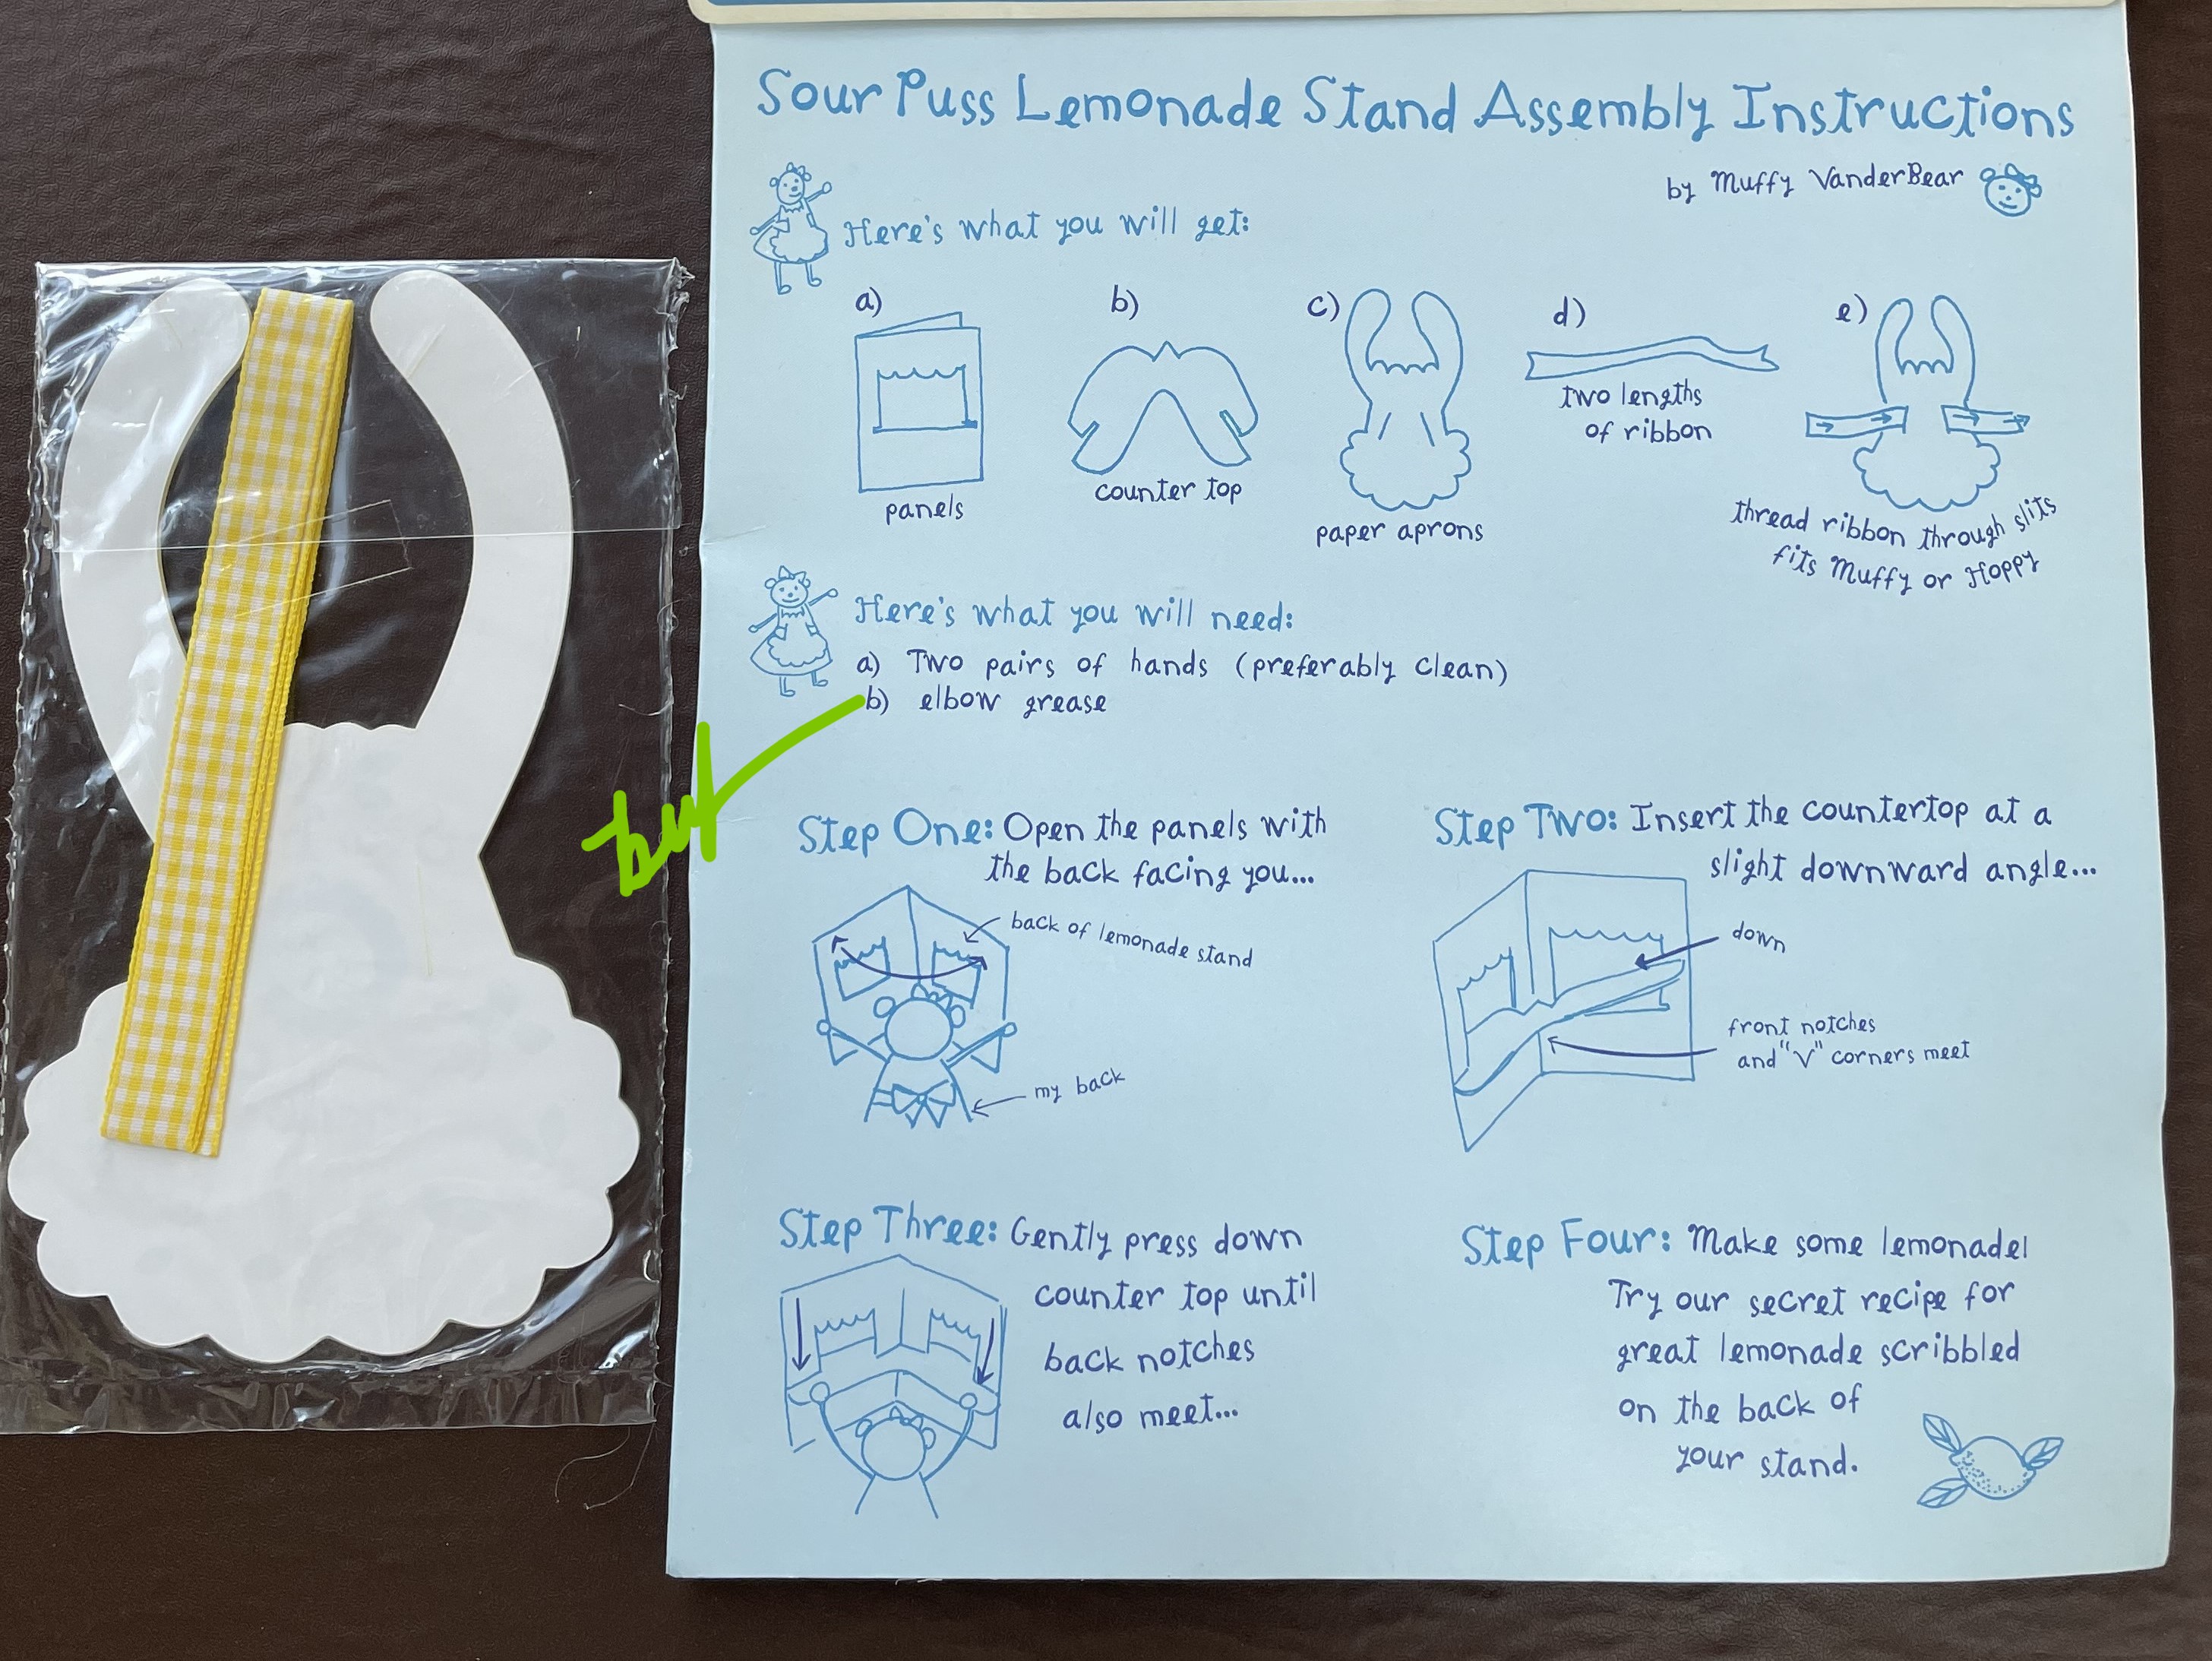 Sour Puss Lemonade Stand Assembly Instructions
by Muffy VanderBear
Here's what you will get:
a)
panels
b)
counter top
c)
paper aprons
d)
two lengths
of ribbon
e)
thread ribbon through slits
fits Muffy or Hoppy
Here's what you will need:
a) Two pairs of hands (preferably clean)
b) elbow grease
buy
Step One: Open the panels with
the back facing you...
back of lemonade stand
my back
Step Two: Insert the countertop at a
slight downward angle...
down
front notches
and "V" corners meet
Step Three: Gently press down
counter top until
back notches
also meet...
Step Four: Make some lemonade!
Try our secret recipe for
great lemonade scribbled
on the back of
your stand.